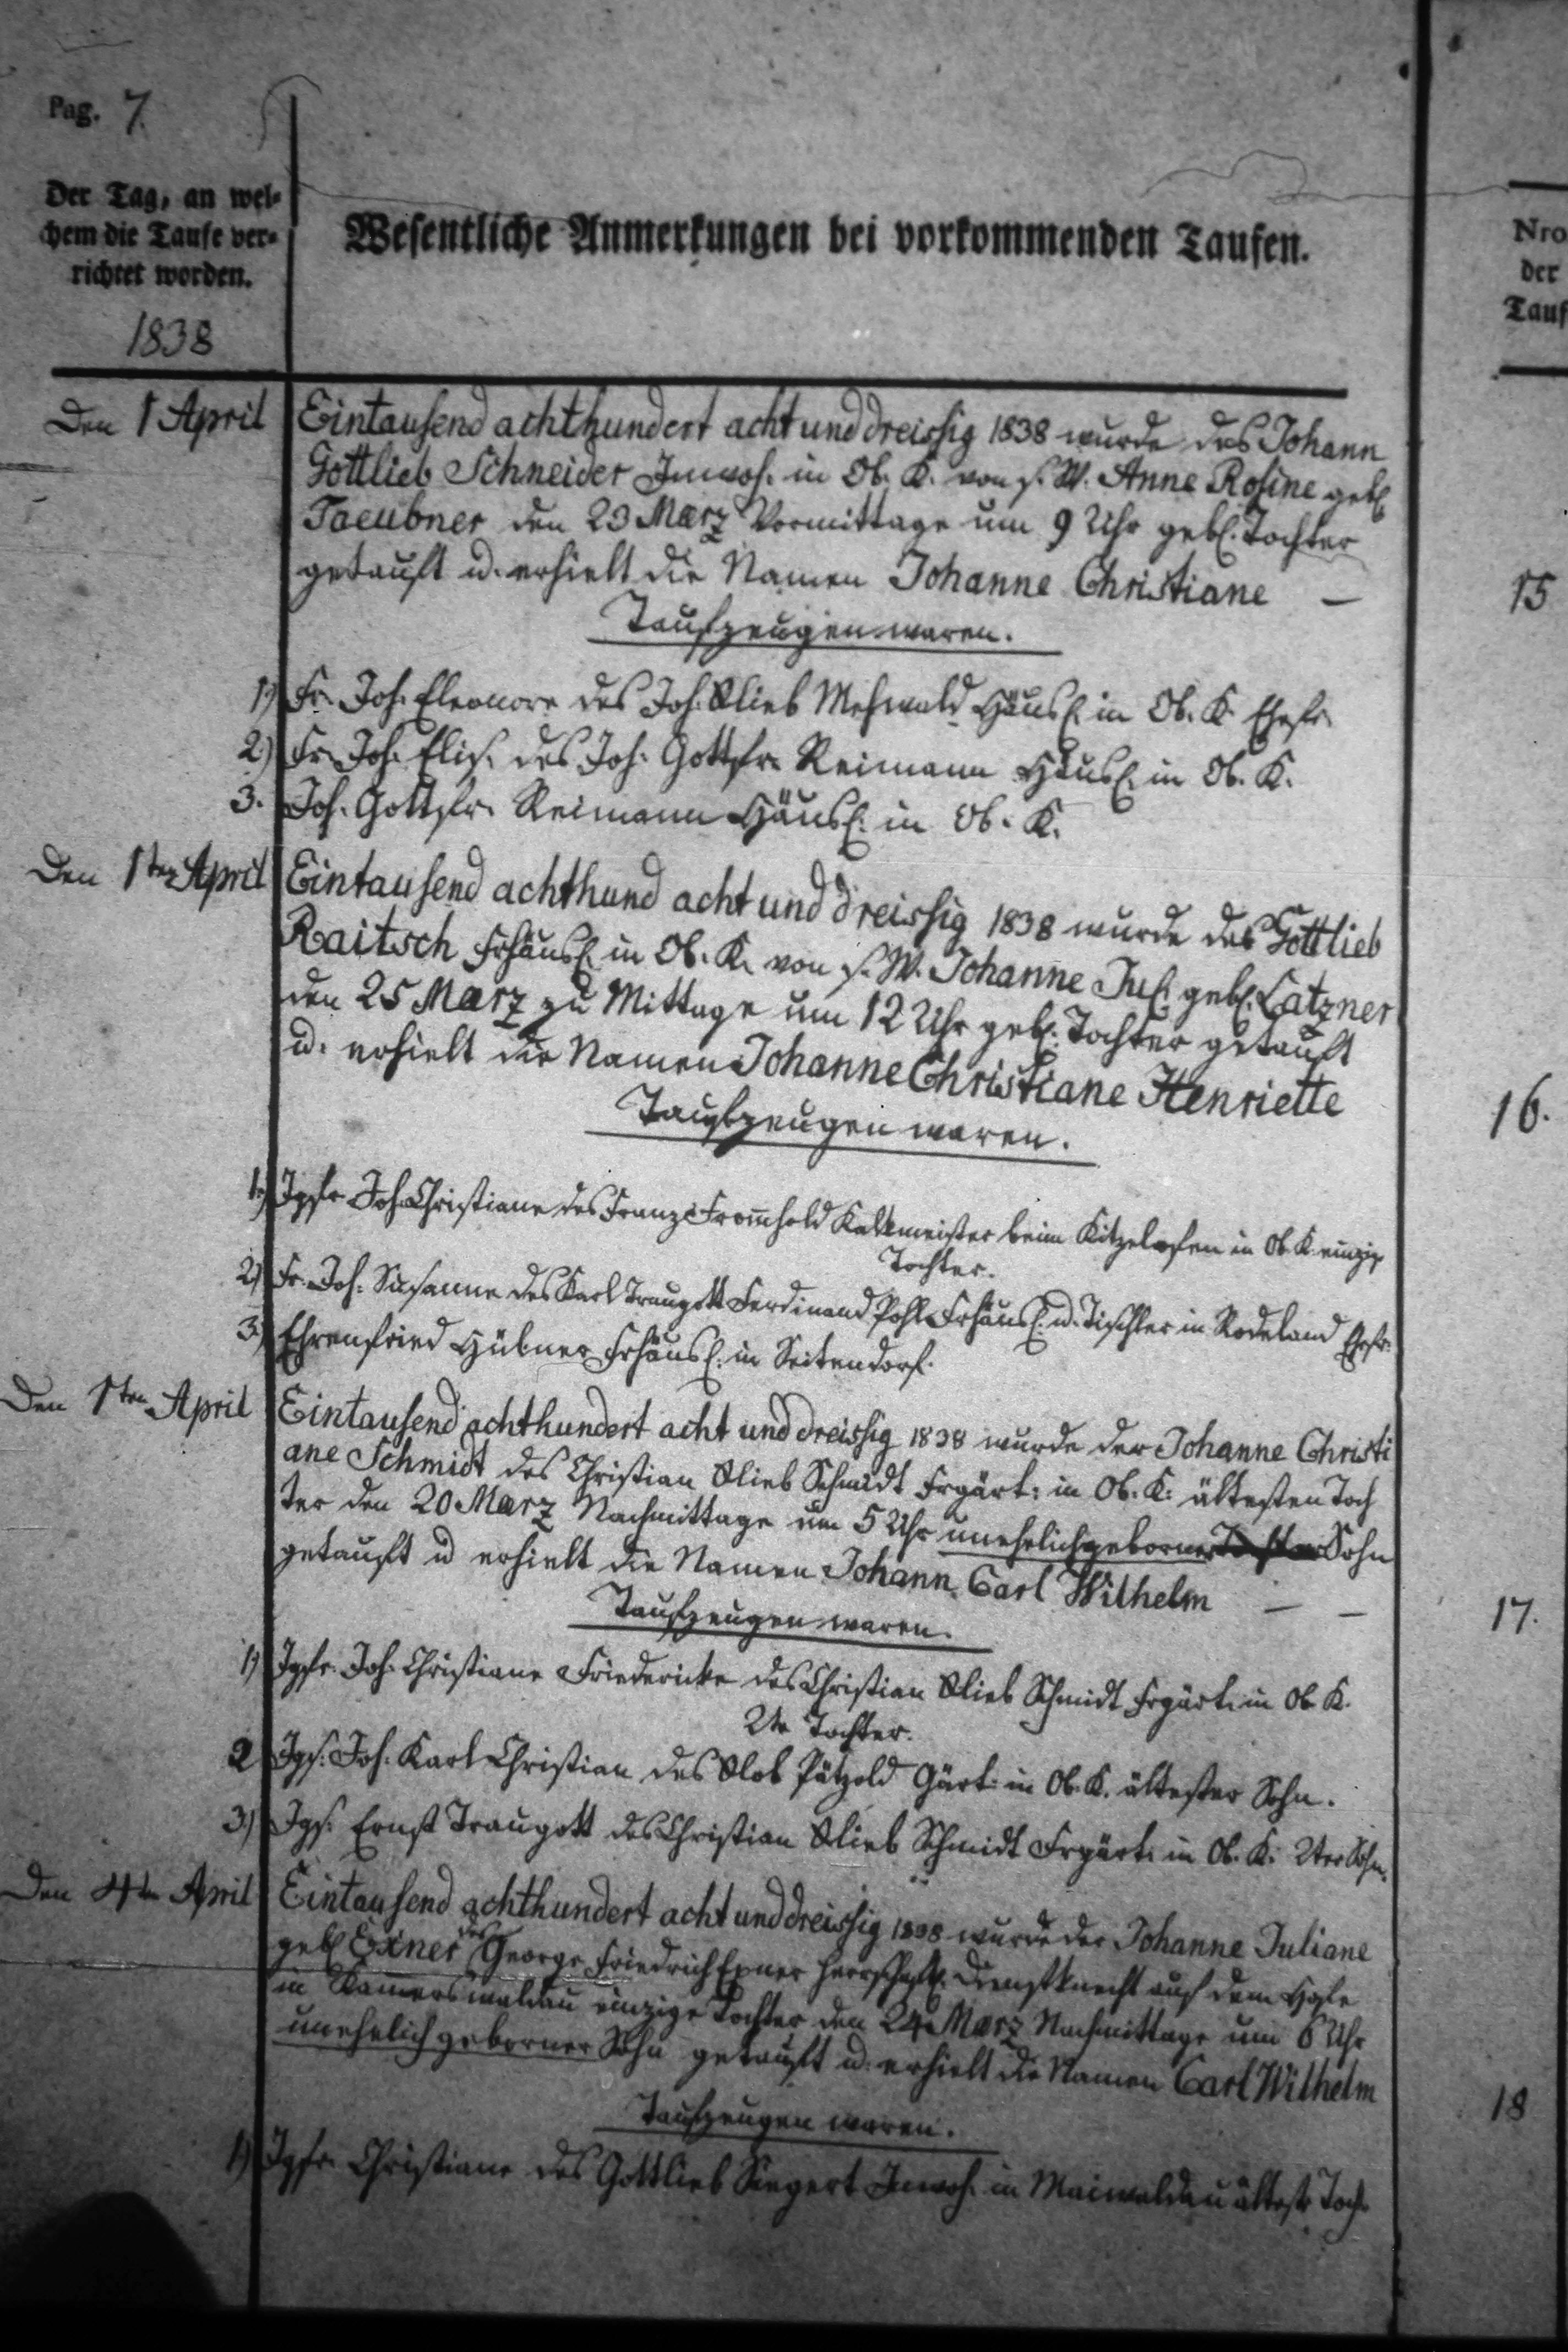 Pag. 7.
Der Tag, an wel-
chem die Taufe ver-
richtet worden.
1838
Wesentliche Anmerkungen bei vorkommenden Taufen.
Nro
der
Tauf
Den 1 April
Eintausend achthundert acht und dreissig 1838 wurde des Johann
Gottlieb Schneider Inwoh. in Ob. K. von s. W. Anne Rosine geb.
Taeubner den 23 Marz Vormittags um 9 Uhr geb. Tochter
getauft u. erhielt die Namen Johanne Christiane —
15
Taufzeugen waren.
1.) Fr. Joh. Eleonore des Joh. Glieb Mehwald Häusl. in Ob. K. Ehefr.
2.) Fr. Joh. Elis. des Joh. Gottfr. Reimann Häusl. in Ob. K.
3. Joh. Gottfr. Reimann Häusl. in Ob. K.
Den 1ten April
Eintausend achthund acht und dreissig 1838 wurde des Gottlieb
Raitsch Frhäusl. in Ob. K. von s. W. Johanne Jul. geb. Latzner
den 25 Marz zu Mittage um 12 Uhr geb. Tochter getauft
u. erhielt die Namen Johanne Christiane Henriette
16.
Taufzeugen waren.
1.) Jgfr. Joh. Christiane des Franz Fromhold Kalkmeister beim Kitzelofen in Ob. K. einzige
Tochter.
2.) Fr. Joh. Susanne des Karl Traugott Ferdinand Pohl Frhäusl. u. Tischler in Rodeland Ehefr.
3.) Ehrenfried Hübner Frhäusl. in Seitendorf.
Den 1ten April
Eintausend achthundert acht und dreissig 1838 wurde der Johanne Christi
ane Schmidt des Christian Glieb Schmidt Frgärt. in Ob. K. ältesten Toch
ter den 20 Marz Nachmittage um 5 Uhr unehelich geborner Tochter Sohn
getauft u erhielt die Namen Johann Carl Wilhelm — —
17.
Taufzeugen waren.
1) Jgfr. Joh. Christiane Friedericke des Christian Glieb Schmidt Frgärt. in Ob. K.
2te Tochter.
2 Jgs. Joh. Karl Christian des Glob Pätzold Gärt. in Ob. K. ältester Sohn.
3.) Jgs. Ernst Traugott des Christian Glieb Schmidt Frgärt. in Ob. K. 2ter Sohn.
Den 4ten April
Eintausend achthundert acht und dreissig 1838 wurde der Johanne Juliane
geb. Exner des George Friedrich Exner herrschaftl. Dienstknecht auf dem Hofe
in Kamerswaldau einzige Tochter den 24 Marz Nachmittage um 6 Uhr
unehelich geborner Sohn getauft u. erhielt die Namen Carl Wilhelm
18
Taufzeugen waren.
1) Jgfr. Christiane des Gottlieb Siegert Inwoh. in Maiwaldau älteste Toch